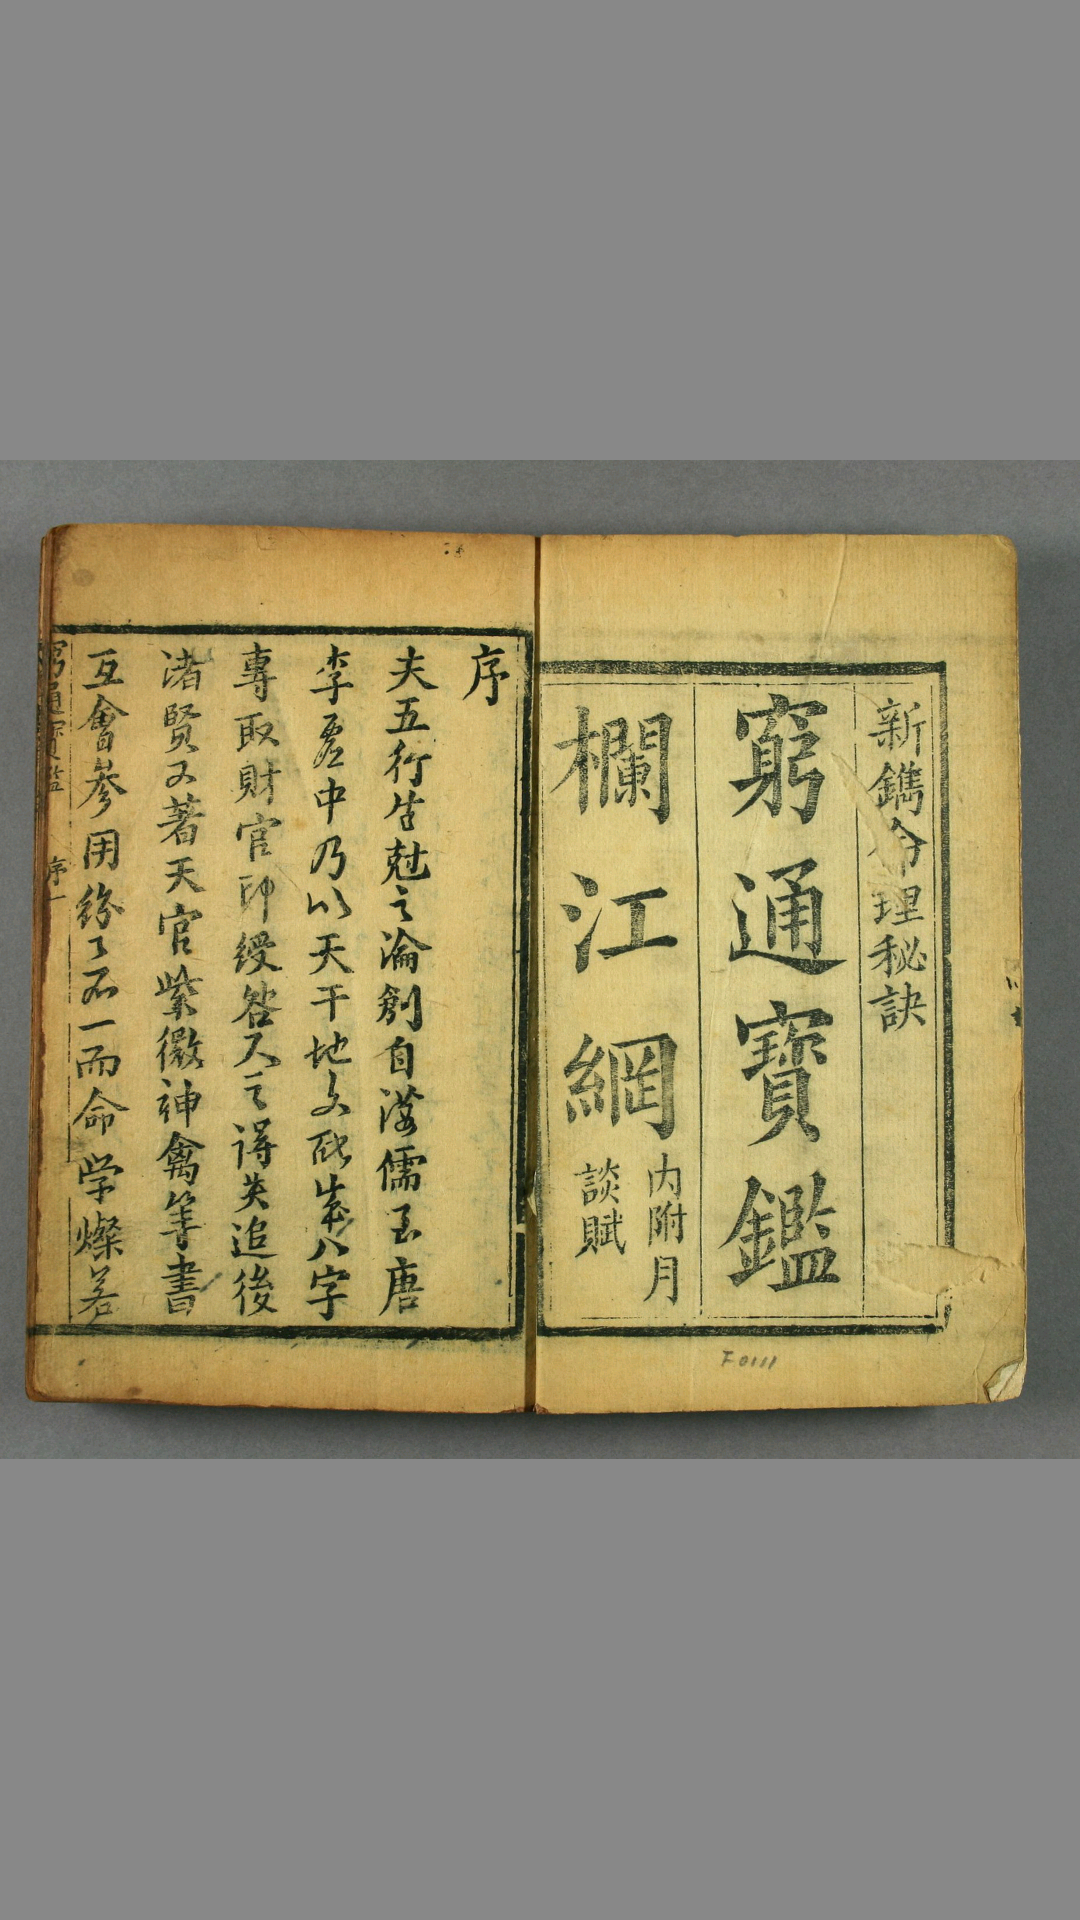 新鐫命理秘訣
窮通寶鑑
欄江綱
内附月
談賦
序
夫五行生尅之論創自漢儒至唐
李虛中乃以天干地支配成八字
專取財官印綬咎人之得失迨後
诸賢又著天官紫微神禽等書
互會參用紛々不一而命学燦若
序一
F0111